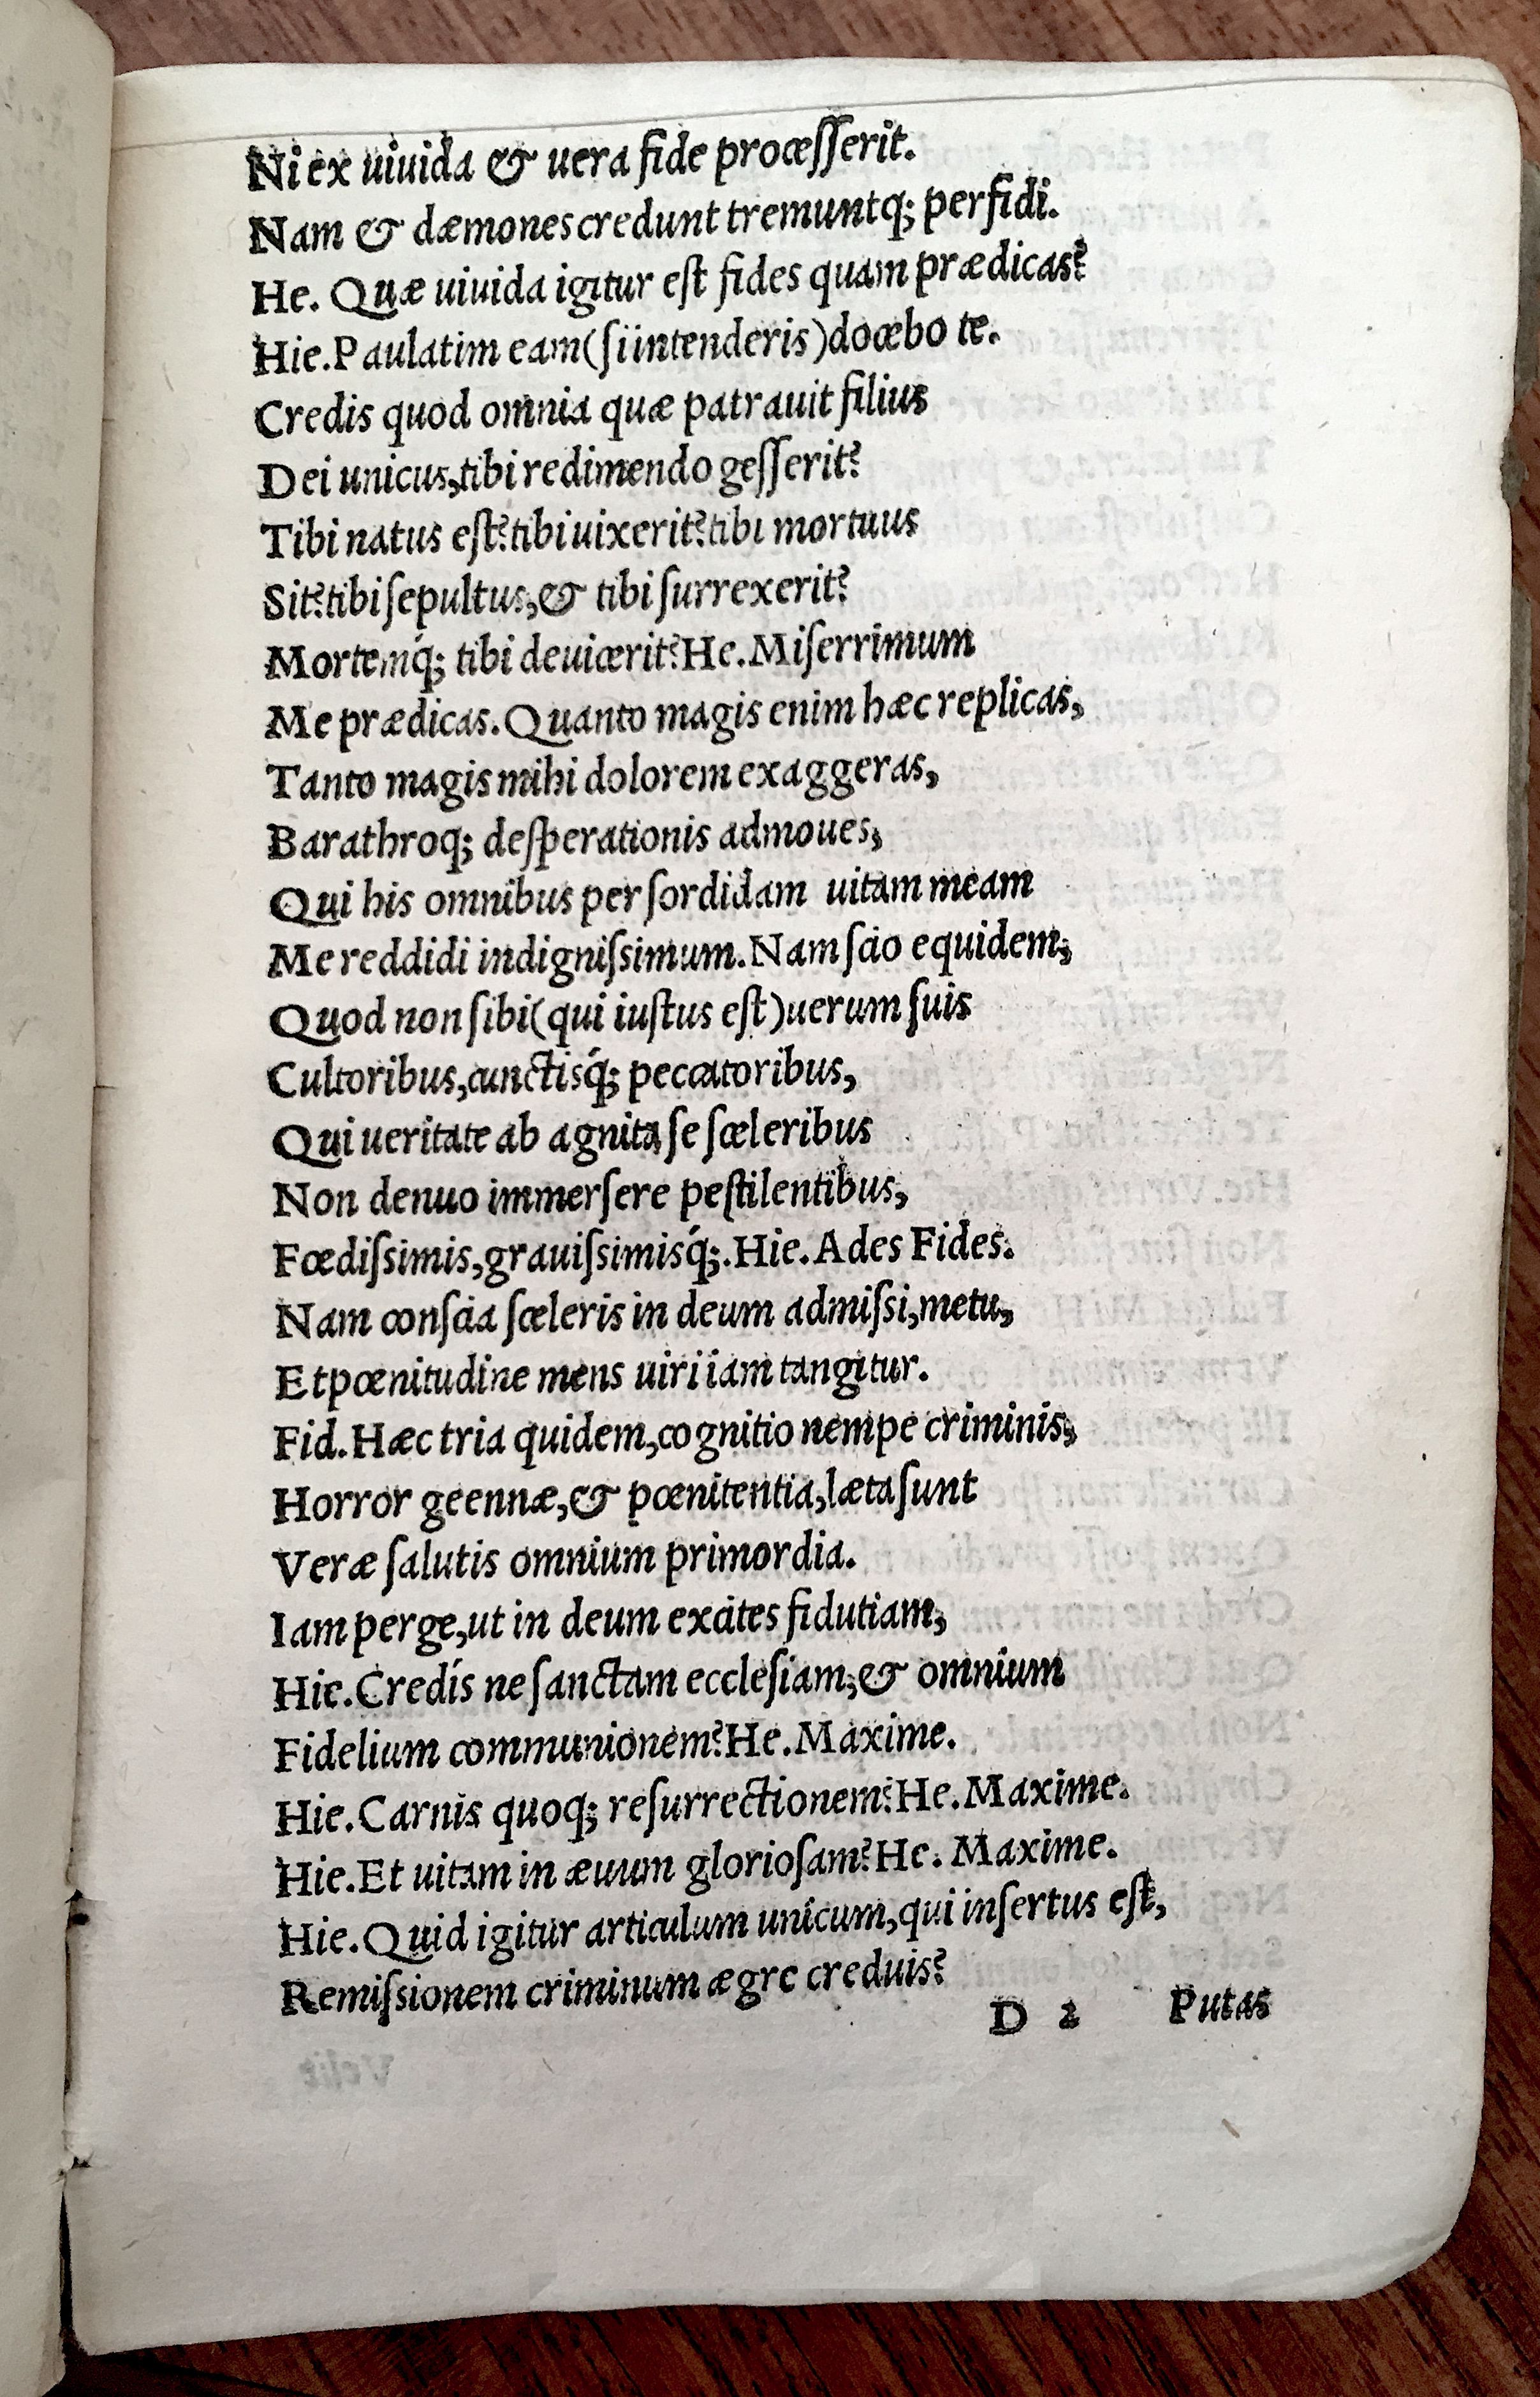 Ni ex uiuida & uera fide proceſſerit.
Nam & dæmones credunt tremuntq; perfidi.
He. Quæ uiuida igitur eſt fides quam prædicas?
Hie. Paulatim eam (ſi intenderis) docebo te.
Credis quod omnia quæ patrauit filius
Dei unicus, tibi redimendo geſſerit?
Tibi natus eſt? tibi uixerit? tibi mortuus
Sit? tibi ſepultus, & tibi ſurrexerit?
Mortemq́; tibi deuicerit? He. Miſerrimum
Me prædicas. Quanto magis enim hæc replicas,
Tanto magis mihi dolorem exaggeras,
Barathroq; deſperationis admoues,
Qui his omnibus per ſordidam uitam meam
Me reddidi indigniſsimum. Nam ſcio equidem,
Quod non ſibi (qui iuſtus eſt) uerum ſuis
Cultoribus, cunctisq́; peccatoribus,
Qui ueritate ab agnita ſe ſceleribus
Non denuo immerſere peſtilentibus,
Fœdiſsimis, grauiſsimisq́;. Hie. Ades Fides.
Nam conſcia ſceleris in deum admiſsi, metu,
Et pœnitudine mens uiri iam tangitur.
Fid. Hæc tria quidem, cognitio nempe criminis,
Horror geennæ, & pœnitentia, læta ſunt
Veræ ſalutis omnium primordia.
Iam perge, ut in deum excites fidutiam,
Hie. Credís ne ſanctam eccleſiam, & omnium
Fidelium communionem? He. Maxime.
Hie. Carnis quoq; reſurrectionem? He. Maxime.
Hie. Et uitam in æuum glorioſam? He. Maxime.
Hie. Quid igitur articulum unicum, qui inſertus eſt,
Remiſsionem criminum ægre creduis?
D 2 Putas